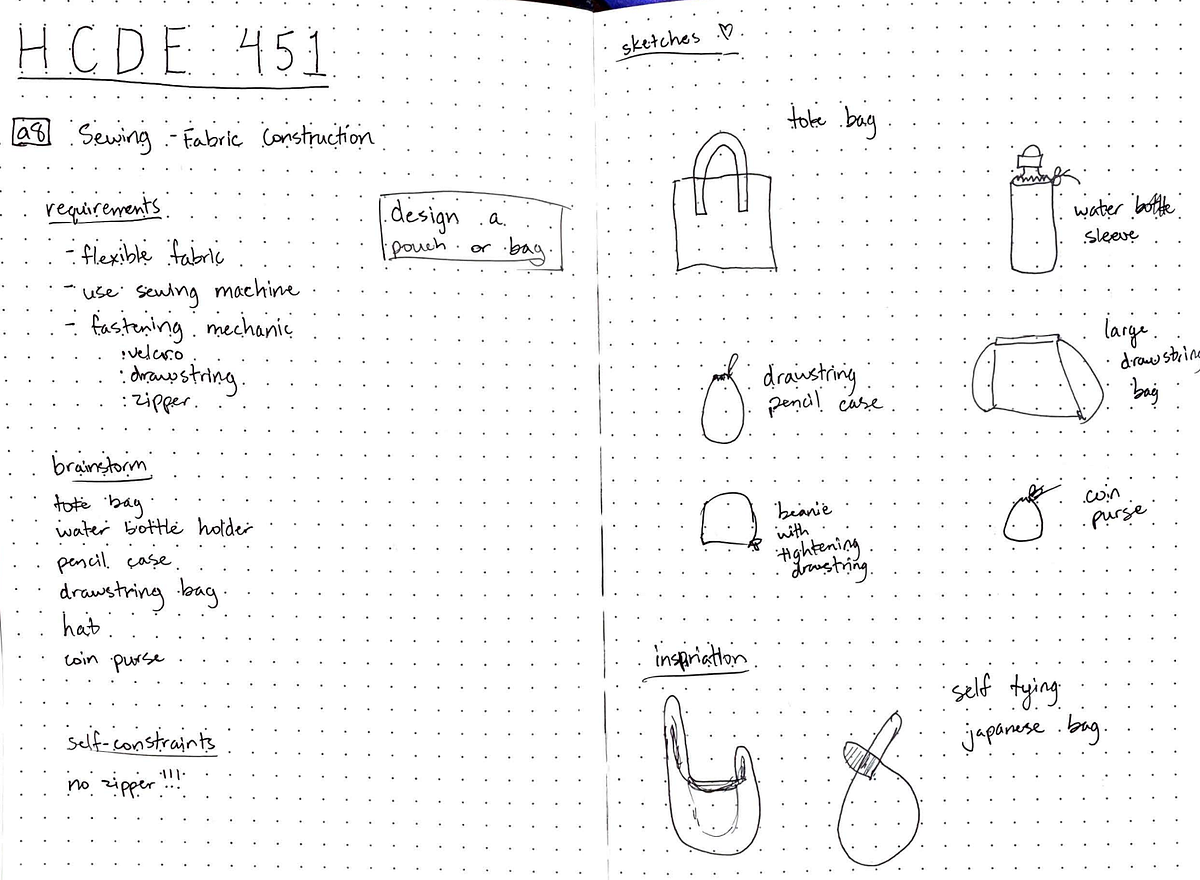 HCDE 451
a8 Sewing - Fabric Construction
requirements
- flexible fabric
- use sewing machine
- fastening mechanic
: velcro
: drawstring
: zipper
design a
pouch or bag
brainstorm
tote bag
water bottle holder
pencil case
drawstring bag
hat
coin purse
self-constraints
no zipper!!!
sketches ♡
tote bag
water bottle
sleeve
drawstring
pencil case
large
drawstring
bag
beanie
with
tightening
drawstring
coin
purse
inspriation
self tying
japanese bag